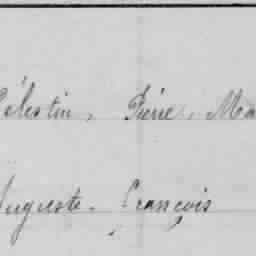 Célestin, Pierre, Ma
Auguste. François